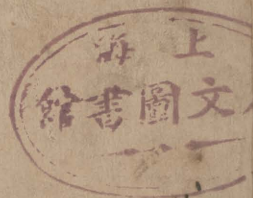 上海
文圖書館